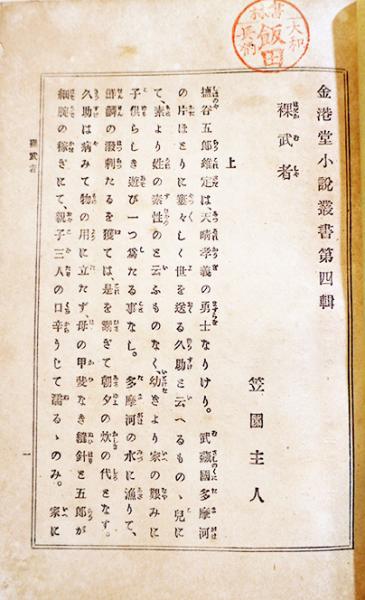 金港堂小說叢書第四輯
裸武者
笠園主人
上
塩谷五郎維定は、天晴孝義の勇士なりけり。武藏國多摩河
の片ほとりに寠々しく世を送る久助と云へるものゝ兒に
て、素より姓の素性のと云ふものなく、幼きより家の艱みに
子供らしき遊び一つ爲たる事なし。多摩河の水に漁りて、
鮮鱗の潑剌たるを獲ては、是を鬻ぎて朝夕の炊の代となす。
久助は病みて物の用に立たず、母の甲斐なき縫針と五郎が
細腕の稼ぎにて、親子三人の口辛うじて濡るゝのみ。家に
裸武者
一
大和
飯田
書林